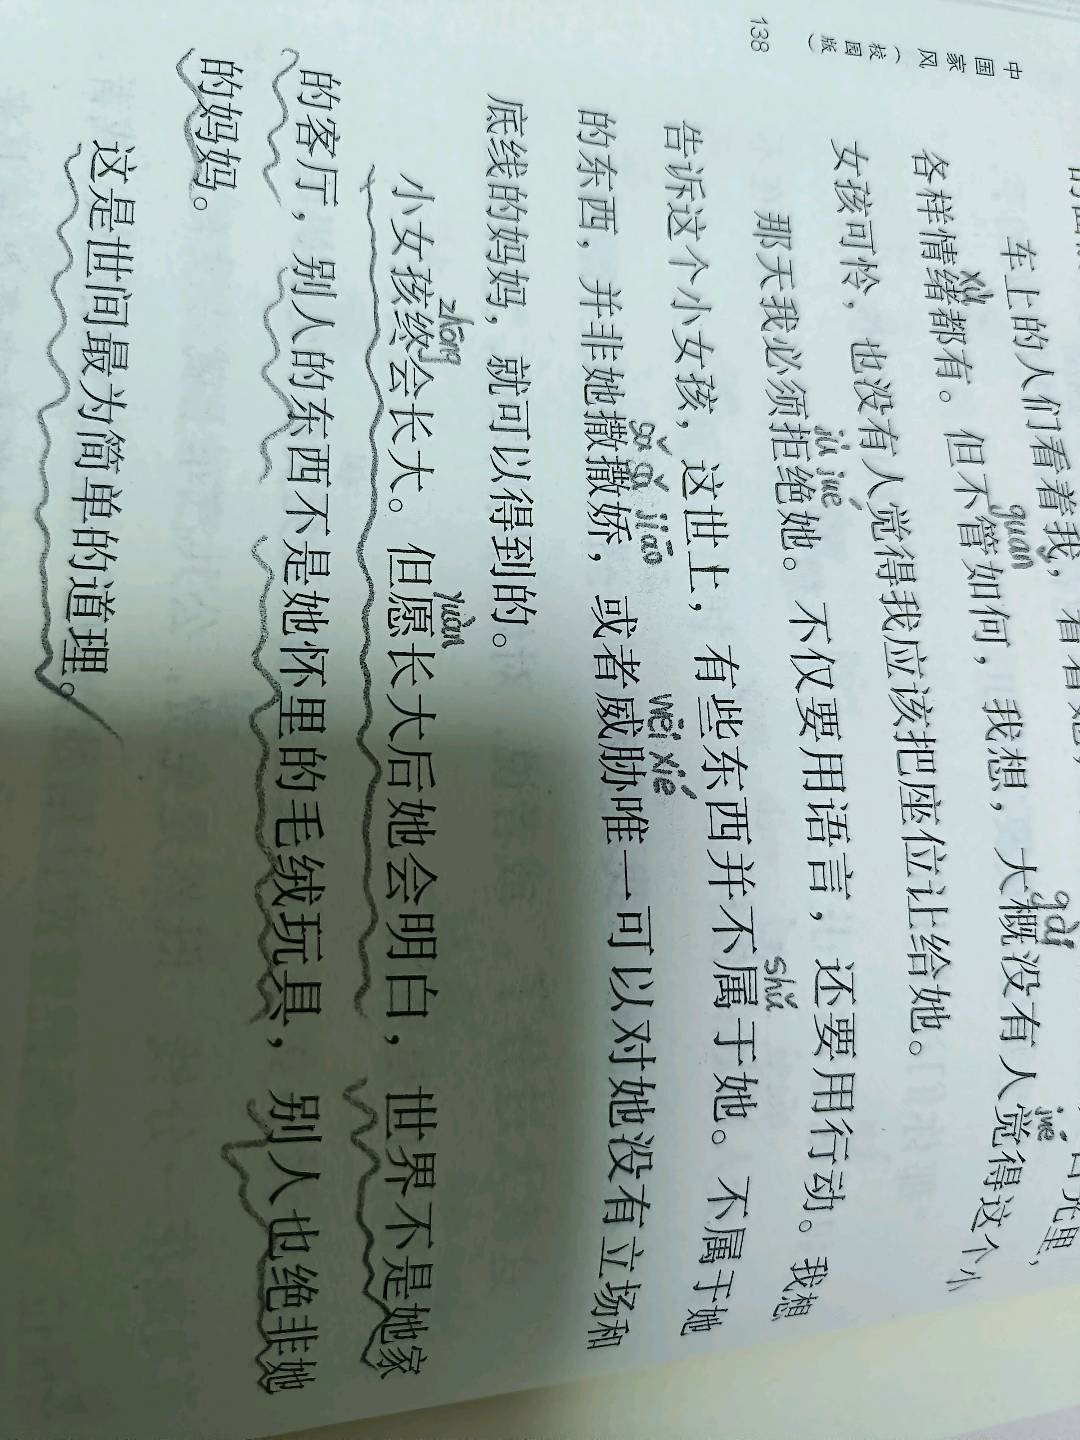 中国家风（校园版）
138
车上的人们看着我，看着她，
目光里，
xù guǎn gài jué
各样情绪都有。但不管如何，我想，大概没有人觉得这个小
女孩可怜，也没有人觉得我应该把座位让给她。
jù jué
那天我必须拒绝她。不仅要用语言，还要用行动。我想
shǔ
告诉这个小女孩，这世上，有些东西并不属于她。不属于她
jiāo wēi xié
的东西，并非她撒撒娇，或者威胁唯一可以对她没有立场和
底线的妈妈，就可以得到的。
zhōng yuàn
小女孩终会长大。但愿长大后她会明白，世界不是她家
的客厅，别人的东西不是她怀里的毛绒玩具，别人也绝非她
的妈妈。
这是世间最为简单的道理。